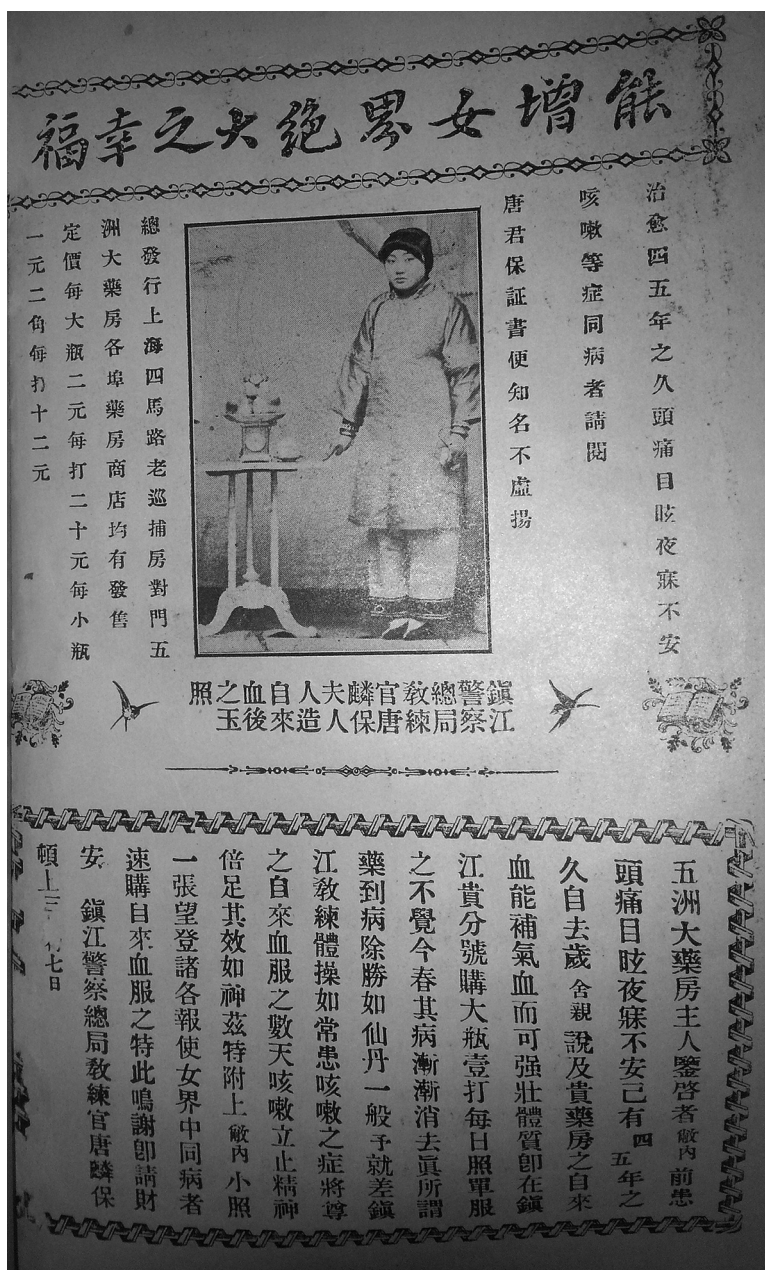 能增女界絶大之幸福
治愈四五年之久頭痛目眩夜寐不安
咳嗽等症同病者請閱
唐君保証書便知名不虛揚
總發行上海四馬路老巡捕房對門五
洲大藥房各埠藥房商店均有發售
定價每大瓶二元每打二十元每小瓶
一元二角每打十二元
鎭江警察總局敎練官唐麟保夫人人造自來血後之玉照
五洲大藥房主人鑒啓者敝內前患
頭痛目眩夜寐不安已有四五年之
久自去歲舍親說及貴藥房之自來
血能補氣血而可强壯體質卽在鎭
江貴分號購大瓶壹打每日照單服
之不覺今春其病漸漸消去眞所謂
藥到病除勝如仙丹一般予就差鎭
江敎練體操如常患咳嗽之症將尊
之自來血服之數天咳嗽立止精神
倍足其效如神茲特附上敝內小照
一張望登諸各報使女界中同病者
速購自來血服之特此鳴謝卽請財
安 鎭江警察總局敎練官唐麟保
頓上三月七日